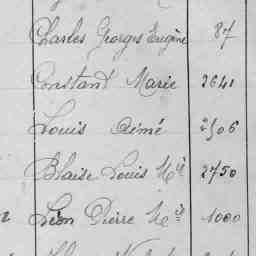 Charles Georges Eugène 87
Constant Marie 2641
Louis Aimé 2506
Blaise Louis Mie 2750
Léon Pierre Mie 1000